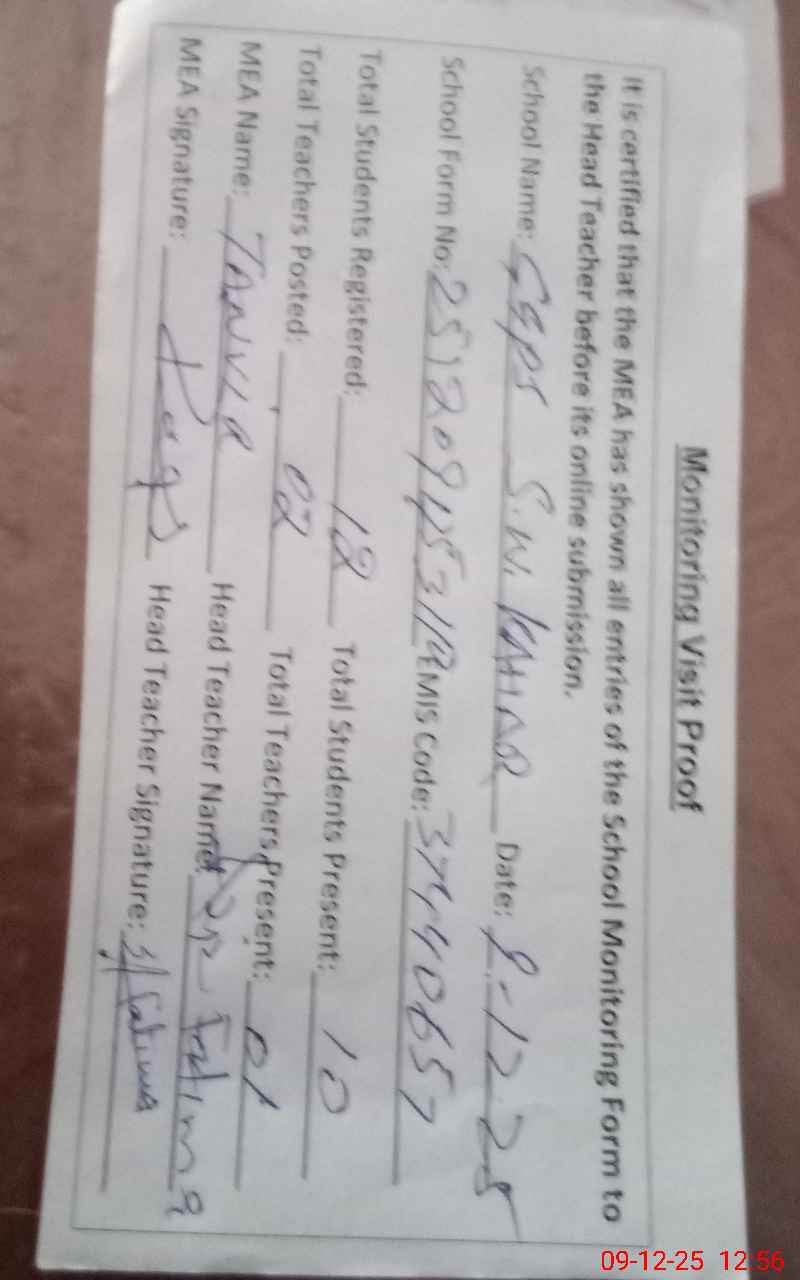 Monitoring Visit Proof
It is certified that the MEA has shown all entries of the School Monitoring Form to
the Head Teacher before its online submission.
School Name: GGPS S.W. KAHAR Date: 9-12-25
School Form No: EMIS Code: 37440657
Total Students Registered: 12 Total Students Present: 10
Total Teachers Posted: 02 Total Teachers Present: 01
MEA Name: TANVIR Head Teacher Name: Fatima
MEA Signature: Head Teacher Signature: Fatima
09-12-25 12:56